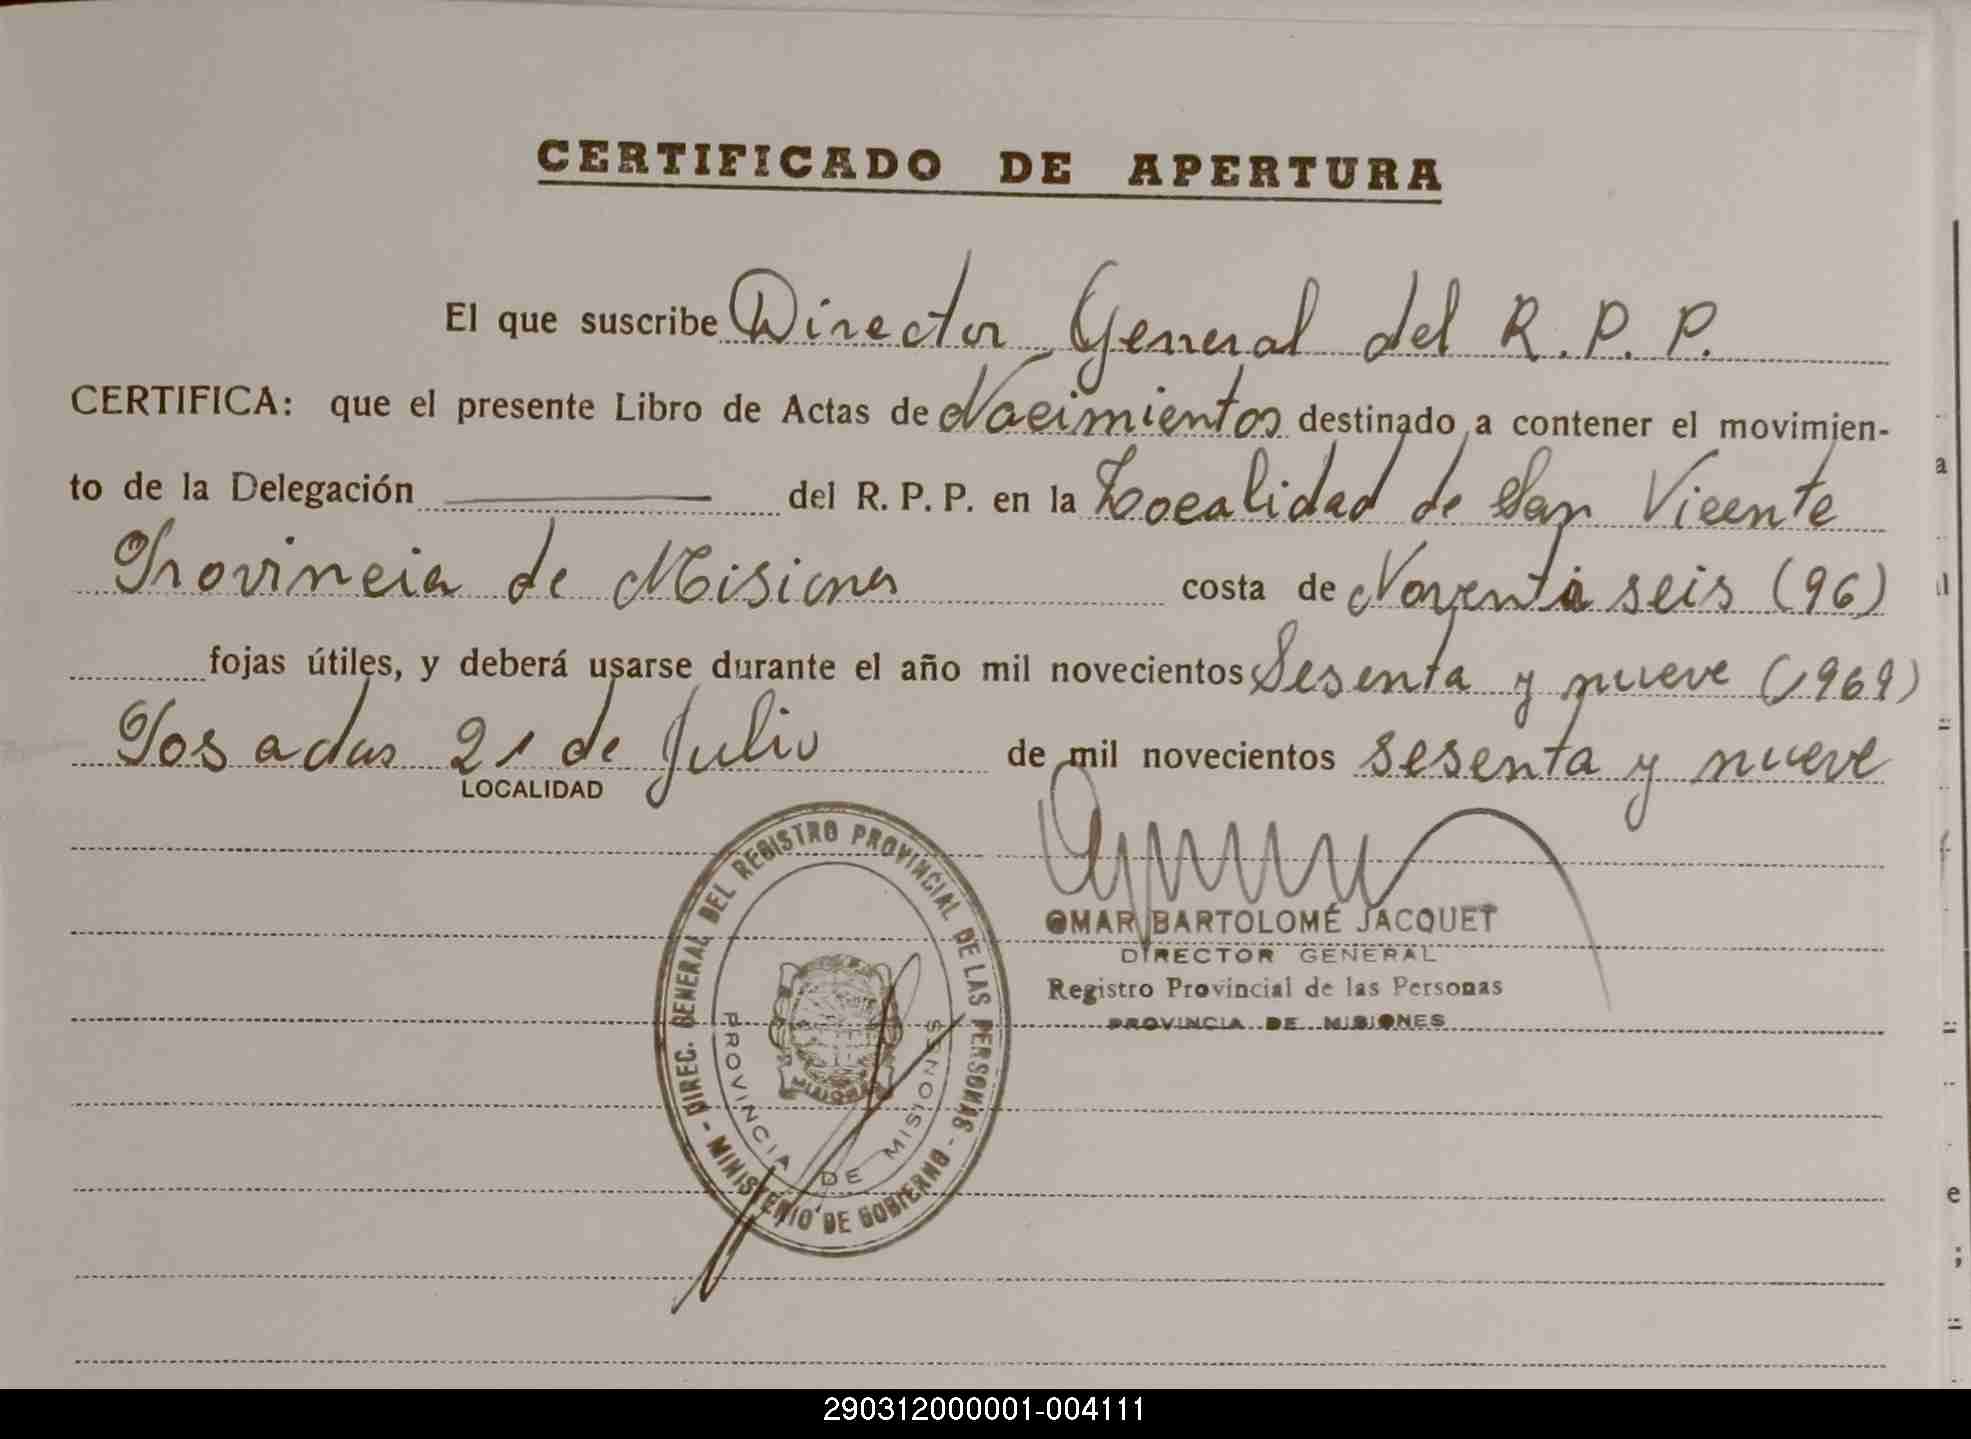 CERTIFICADO DE APERTURA
El que suscribe Director General del R. P. P.
CERTIFICA: que el presente Libro de Actas de Nacimientos destinado a contener el movimien-
to de la Delegación del R. P. P. en la Localidad de San Vicente
Provincia de Misiones costa de Noventa seis (96)
fojas útiles, y deberá usarse durante el año mil novecientos Sesenta y nueve (1969)
Posadas 21 de Julio de mil novecientos sesenta y nueve
LOCALIDAD
OMAR BARTOLOMÉ JACQUET
DIRECTOR GENERAL
Registro Provincial de las Personas
PROVINCIA DE MISIONES
DIREC. GENERAL DEL REGISTRO PROVINCIAL DE LAS PERSONAS - MINISTERIO DE GOBIERNO -
PROVINCIA DE MISIONES
290312000001-004111